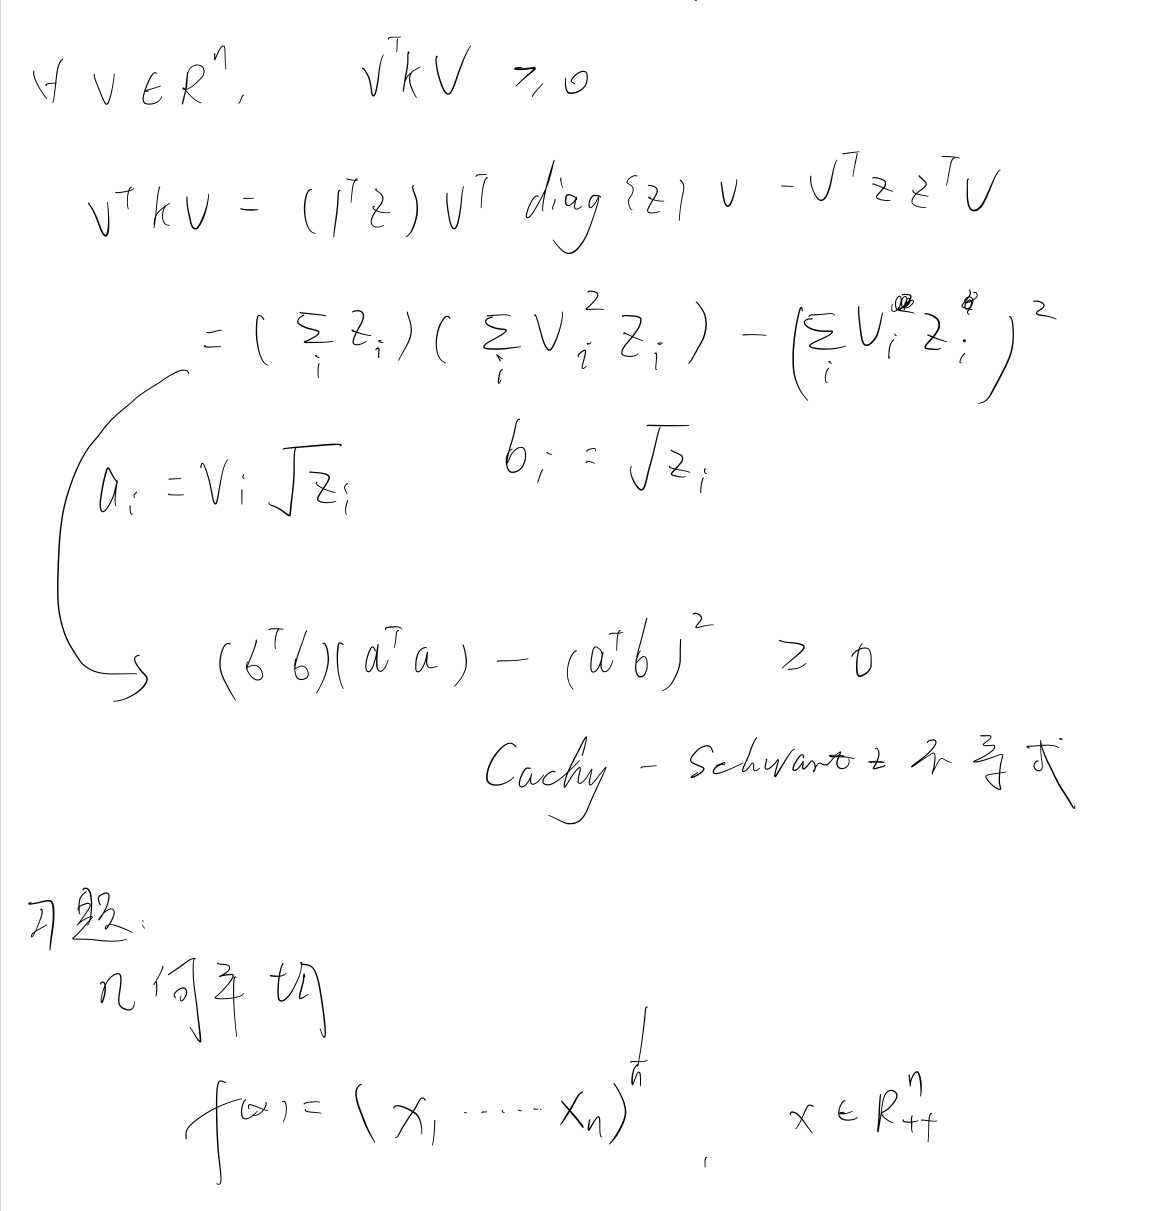 ∀ V ∈ Rⁿ, VᵀKV ≥ 0
VᵀKV = (1ᵀz) Vᵀ diag{z} V - VᵀzzᵀV
= (∑ᵢ zᵢ)(∑ᵢ Vᵢ² zᵢ) - (∑ᵢ Vᵢ zᵢ)²
aᵢ = Vᵢ √zᵢ bᵢ = √zᵢ
(bᵀb)(aᵀa) - (aᵀb)² ≥ 0
Cachy - Schwartz 不等式
习题:
几何平均
f(x) = (x₁ ...... xₙ)^(1/n), x ∈ Rⁿ₊₊